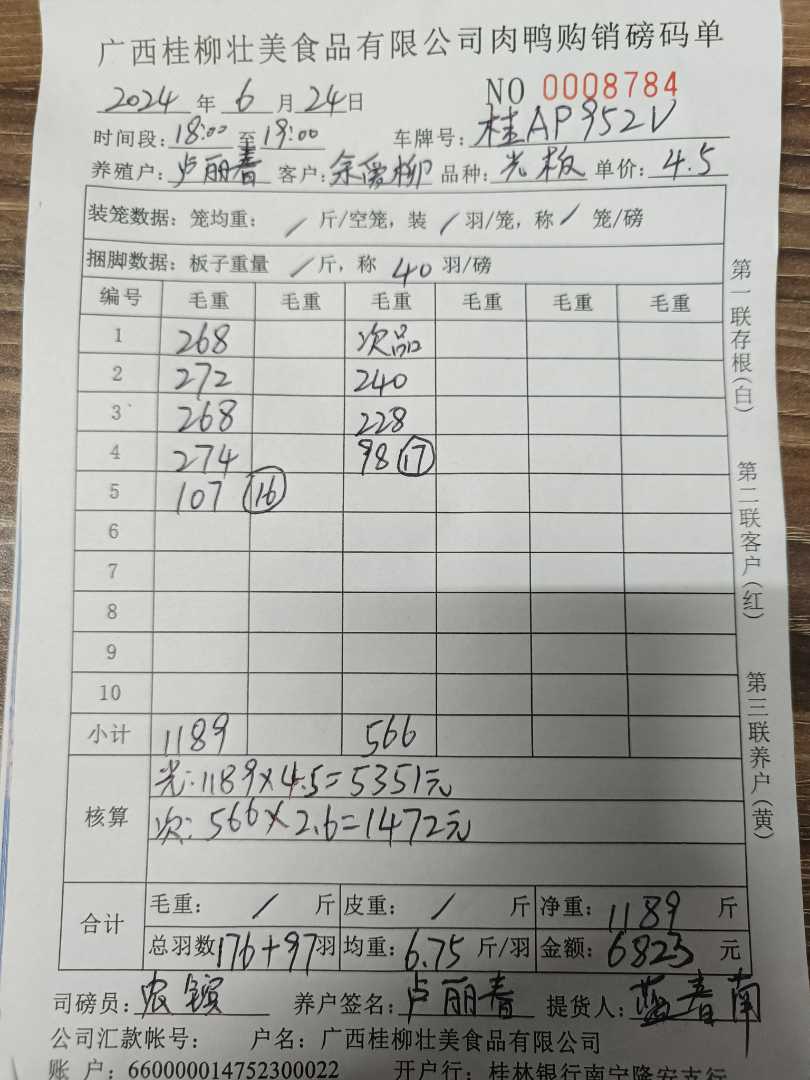 广西桂柳壮美食品有限公司肉鸭购销磅码单
2024 年 6 月 24 日 NO 0008784
时间段: 18:00 至 19:00 车牌号: 桂AP952V
养殖户: 卢丽春 客户: 余爱柳 品种: 光板 单价: 4.5
装笼数据: 笼均重: / 斤/空笼, 装 / 羽/笼, 称 / 笼/磅
捆脚数据: 板子重量 / 斤, 称 40 羽/磅
编号 毛重 毛重 毛重 毛重 毛重 毛重
1 268 次品
2 272 240
3 268 228
4 274 98 17
5 107 16
6
7
8
9
10
小计 1189 566
核算 光: 1189×4.5=5351元
次: 566×2.6=1472元
合计 毛重: / 斤 皮重: / 斤 净重: 1189 斤
总羽数 176+97 羽 均重: 6.75 斤/羽 金额: 6823 元
司磅员: 农 养户签名: 卢丽春 提货人: 蓝春南
公司汇款帐号: 户名: 广西桂柳壮美食品有限公司
账 户: 660000014752300022 开户行: 桂林银行南宁隆安支行
第一联存根(白) 第二联客户(红) 第三联养户(黄)